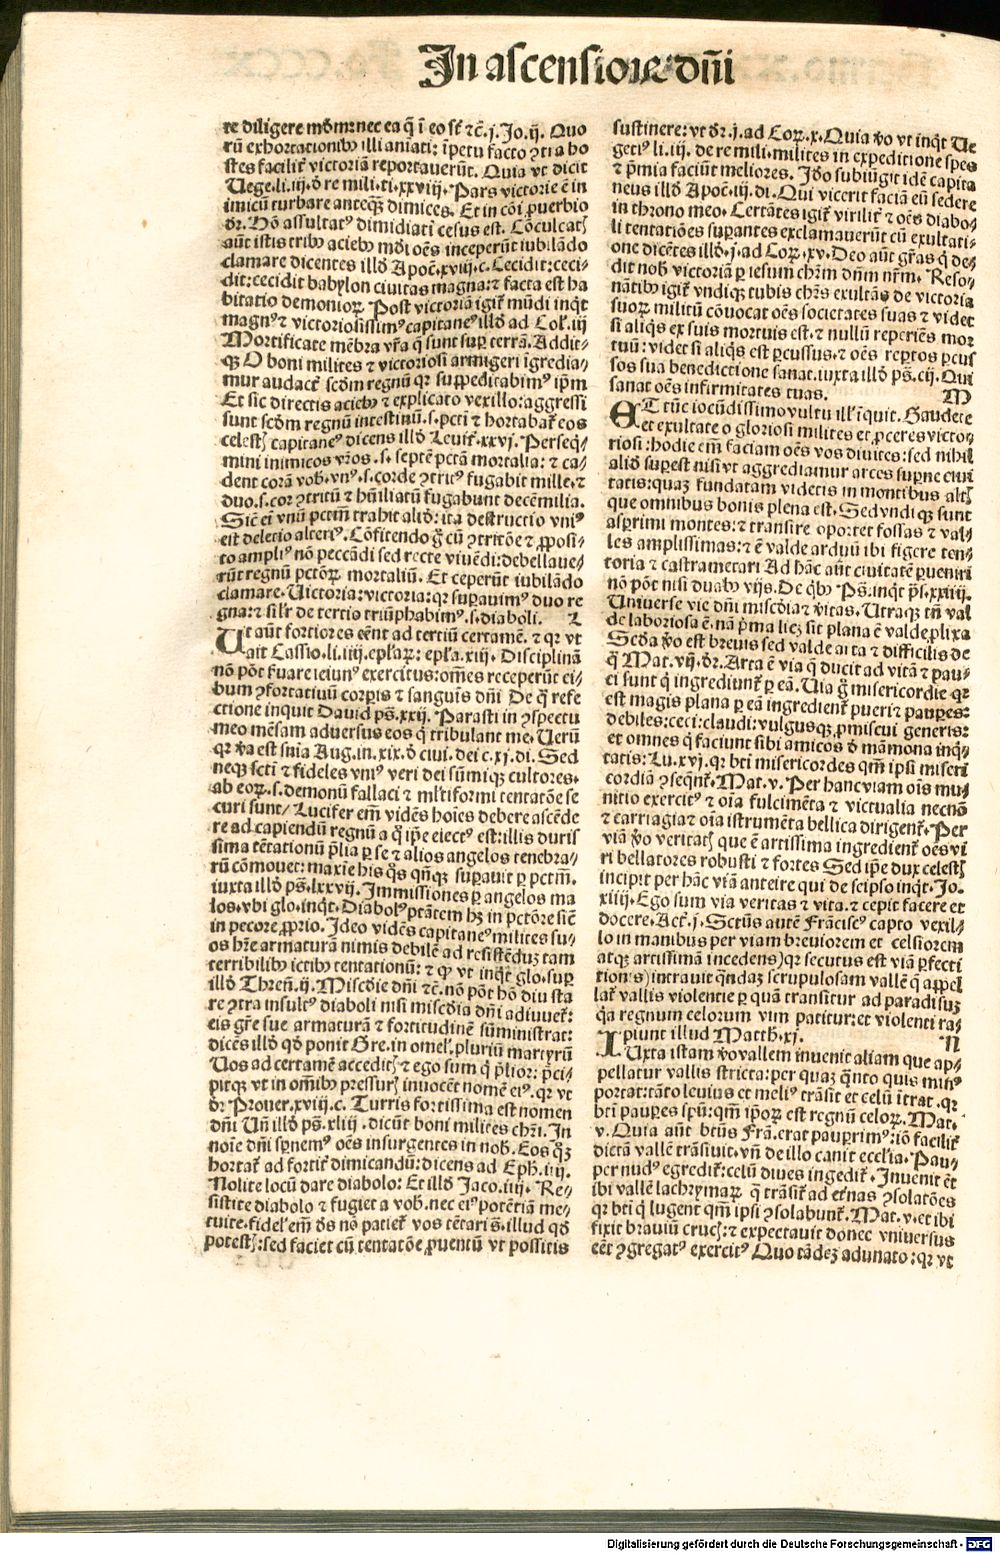 In ascensione dn̄i
re diligere mōm: nec ea q̄ ī eo st̄ ⁊c̄. j. Jo. ij. Quo
rū exhortationibꝰ illi aniati: īpetu facto ↄtra ho
stes facilit̄ victoriā reportauerūt. Quia vt dicit
Uege. li. iij. d̄ re mili. ti. xxviij. Pars victorie ē in
imicū turbare anteqꝫ dimices. Et in cōi ꝓuerbio
dr̄. Hō assultatꝰ dimidiati cesus est. Cōculcatꝭ
aūt istis tribꝰ aciebꝰ mōi oēs inceperūt iubilādo
clamare dicentes illd̄ Apoc̄. xviij. c. Cecidit: ceci⸗
dit: cecidit babylon ciuitas magna: ⁊ facta est ha
bitatio demonioꝝ. Post victoriā igit̄ mūdi inqt̄
magnꝰ ⁊ victoriosissimꝰ capitaneꝰ illd̄ ad Col̄. iij
Mortificate mēbra vr̄a q̄ sunt suꝑ terrā. Addit⸗
qꝫ O boni milites ⁊ victoriosi armigeri īgredia⸗
mur audact̄ scd̄m regnū qr̄ suppeditabimꝰ ip̄m
Et sic directis aciebꝰ ⁊ explicato vexillo: aggressi
sunt scd̄m regnū intestinū. s. pcti ⁊ hortabat̄ eos
celestꝭ capitaneꝰ dicens illd̄ Leuit̄. xxvj. Perseq̄⸗
mini inimicos vr̄os. s. septē pctā mortalia: ⁊ ca⸗
dent corā vob̄. vnꝰ. s. corde ↄtritꝰ fugabit mille. ⁊
duo. s. cor ↄtritū ⁊ hūiliatū fugabunt decē milia.
Sic̄ ei vnū pctm̄ trahit aliō: ita destructio vniꝰ
est deletio alterꝰ. Cōfitendo ḡ cū ↄtritōe ⁊ ꝓposi⸗
to ampliꝰ nō peccādi sed recte viuēdi: debellaue⸗
rūt regnū pctōꝝ mortaliū. Et ceperūt iubilādo
clamare. Uictoria: victoria: qr̄ suꝑauimꝰ duo re
gna: ⁊ sil'r de tertio triūphabimꝰ. s. diaboli. L
Ut aūt fortiores eēnt ad tertiū certamē. ⁊ qr̄ vt
ait Cassio. li. iiij. epl'aꝝ: epl'a. xiij. Disciplinā
nō pōt ẜuare ieiunꝰ exercitus: om̄es receperūt ci⸗
bum ↄfortatiuū corꝑis ⁊ sanguis dn̄i De q̄ refe
ctione inquit Dauid ps̄. xxij. Parasti in ↄspectu
meo mēsam aduersus eos q̄ tribulant me. Uerū
qr̄ ꝟa est snīa Aug. in. xix. d̄ ciui. dei c. xj. di. Sed
neqꝫ scti ⁊ fideles vniꝰ veri dei sūmiqꝫ cultores.
ab eoꝝ. s. demonū fallaci ⁊ ml'tiformi tentatōe se
curi sunt/ Lucifer em̄ vidēs hoīes debere ascēde
re ad capiendū regnū a q̄ ip̄e eiectꝰ est: illis duris
sima tētationū p̄lia ꝑ se ⁊ alios angelos tenebra⸗
rū cōmouet: maxie his q̄s qn̄qꝫ suꝑauit ꝑ pctm̄.
iuxta illd̄ ps̄. lxxvij. Immissiones ꝑ angelos ma
los. vbi glo. inqt̄. Diabolꝰ ptātem hꝫ in pctōre siē
in pecore ꝓprio. Ideo vidēs capitaneꝰ milites su⸗
os hr̄e armaturā nimis debilē ad resistēduꝫ tam
terribilibꝰ ictibꝰ tentationū: ⁊ qꝫ vt inqt̄ glo. suꝑ
illd̄ Thren̄. ij. Misc̄die dn̄i ⁊c̄. nō pōt hō diu sta
re ↄtra insultꝰ diaboli nisi misc̄dia dn̄i adiuuet̄:
eis gr̄e sue armaturā ⁊ fortitudinē sūministrat:
dicēs illd̄ qd̄ ponit Gre. in omel̄. pluriū martyrū
Uos ad certamē acceditꝭ ⁊ ego sum q̄ p̄lior: p̄ci⸗
pitqꝫ vt in om̄ibꝰ pressurꝭ inuocēt nomē eiꝰ. qr̄ vt
dr̄ Prouer. xviij. c. Turris fortissima est nomen
dn̄i Un̄ illd̄ ps̄. xliij. dicūt boni milites chr̄i. In
noīe dn̄i sꝑnemꝰ oēs insurgentes in nob̄. Eos qꝫ
hortat̄ ad fortit̄ dimicandū: dicens ad Eph̄. iiij.
Nolite locū dare diabolo: Et illd̄ Jaco. iiij. Re⸗
sistite diabolo ⁊ fugiet a vob̄. nec eiꝰ potētiā me⸗
tuite. fidel' em̄ ds̄ nō patiet̄ vos tētari s̄. illud qd̄
potestꝭ: sed faciet cū tentatōe ꝓuentū vt possitis
sustinere: vt dr̄. j. ad Coꝝ. x. Quia ꝟo vt inqt̄ Ue
getiꝰ li. iij. de re mili. milites in expeditione spes
⁊ p̄mia faciūt meliores. Ido subiūgit idē capita
neus illd̄ Apoc̄. iij. di. Qui vicerit faciā eū sedere
in throno meo. Certātes igit̄ virilit̄ ⁊ oēs diabo⸗
li tentatiōes suꝑantes exclamauerūt cū exultati⸗
one dicētes illd̄. j. ad Coꝝ. xv. Deo aūt gr̄as q̄ de⸗
dit nob̄ victoriā ꝑ iesum chr̄m dn̄m nr̄m. Reso⸗
nātibꝰ igit̄ vndiqꝫ tubis chr̄s exultās de victoria
suoꝝ militū cōuocat oēs societates suas ⁊ videt
si aliqs̄ ex suis mortuis est. ⁊ nullū reperiēs mor
tuū: videt si aliqs̄ est ꝑcussus. ⁊ oēs reptos ꝑcus
sos sua benedictione sanat. iuxta illd̄ ps̄. cij. Qui
sanat oēs infirmitates tuas. M
ET tūc iocūdissimo vultu ill' īquit. Gaudete
et exultate o gloriosi milites et ꝓceres victo⸗
riosi: hodie em̄ faciam oēs vos diuites: sed nihil
aliō suꝑest nisi vt aggrediamur arces suꝑne ciui
tatis: quaꝫ fundatam videtis in montibus altꝭ
que omnibus bonis plena est. Sed vndiqꝫ sunt
asꝑrimi montes: ⁊ transire oportet fossas ⁊ val⸗
les amplissimas: ⁊ ē valde arduū ibi figere ten⸗
toria ⁊ castrametari Ad hāc aūt ciuitatē ꝑueniri
nō pōt nisi duabꝰ vijs. De qb̄ꝰ Ps̄. inqt̄ ps̄. xxiiij.
Uniuerse vie dn̄i misc̄dia ⁊ ꝟitas. Utraqꝫ tn̄ val
de laboriosa ē. nā p̄ma licꝫ sit plana ē valde ꝓlixa
Scd̄a ꝟo est breuis sed valde arta ⁊ difficilis de
q̄ Mat. vij. dr̄. Arta ē via q̄ ducit ad vitā ⁊ pau⸗
ci sunt q̄ ingrediunt̄ ꝑ eā. Uia ḡ misericordie qr̄
est magis plana ꝑ eā ingredient̄ pueri ⁊ pauꝑes:
debiles: ceci: claudi: vulgusqꝫ ꝓmiscui generis:
et omnes q̄ faciunt sibi amicos d̄ māmona inq̄⸗
tatis: Lu. xvj. qr̄ bti misericordes qm̄ ipsi miseri
cordiā ↄseqn̄t̄. Mat. v. Per hanc viam oīs mu⸗
nitio exercitꝰ ⁊ oīa fulcimēta ⁊ victualia necnō
⁊ carriagia ⁊ oīa istrumēta bellica dirigent̄. Per
viā ꝟo veritatꝭ que ē artissima ingredient̄ oēs vi
ri bellatores robusti ⁊ fortes Sed ip̄e dux celestꝭ
incipit per hāc viā anteire qui de seipso inqt̄. Jo.
xiiij. Ego sum via veritas ⁊ vita. ⁊ cepit facere et
docere. Act̄. j. Sctūs autē Frācisc̄ꝰ capto vexil⸗
lo in manibus per viam breuiorem et celsiorem
atqꝫ artissimā incedens) qr̄ secutus est viā ꝑfecti
tion̄s) intrauit qn̄daꝫ scrupulosam vallē q̄ appel
lat̄ vallis violentie ꝑ quā transitur ad paradisuꝫ
q̄a regnum celorum vim patitur: et violenti ra⸗
piunt illud Matth̄. xj. N
IUxta istam ꝟo vallem inuenit aliam que ap⸗
pellatur vallis stricta: per quaꝫ q̄nto quis minꝰ
portat: tāto leuius et meliꝰ trāsit et celū ītrat. qr̄
bti pauꝑes spū: qm̄ ip̄oꝝ est regnū celoꝝ. Mat.
v. Quia aūt btūs Frā. erat pauꝑrimꝰ: iō facilit̄
dictā vallē trāsiuit. vn̄ de illo canit eccl'ia. Pau⸗
per nudꝰ egredit̄: celū diues ingredit̄. Inuenit ēt
ibi vallē lachrymaꝝ q̄ trāsit̄ ad et̄nas ↄsolatōes
qr̄ bti q̄ lugent qm̄ ipsi ↄsolabunt̄. Mat. v. et ibi
fixit brauiū crucꝭ: ⁊ expectauit donec vniuersus
eēt ↄgregatꝰ exercitꝰ Quo tādeꝫ adunato: qr̄ vt
Digitalisierung gefördert durch die Deutsche Forschungsgemeinschaft - DFG